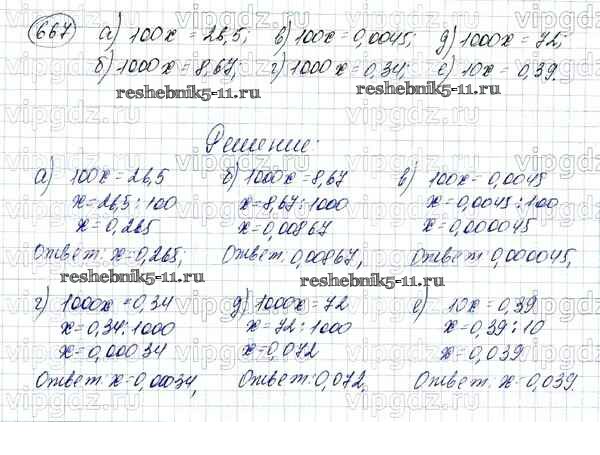 667 а) 100x = 26,5; в) 100x = 0,0045; д) 1000x = 72;
б) 1000x = 8,67; г) 1000x = 0,34; е) 10x = 0,39.
reshebnik5-11.ru reshebnik5-11.ru
Решение:
а) 100x = 26,5 б) 1000x = 8,67 в) 100x = 0,0045
x = 26,5 : 100 x = 8,67 : 1000 x = 0,0045 : 100
x = 0,265 x = 0,00867 x = 0,000045
Ответ: x = 0,265; Ответ: 0,00867, Ответ: 0,000045,
reshebnik5-11.ru reshebnik5-11.ru
г) 1000x = 0,34 д) 1000x = 72 е) 10x = 0,39
x = 0,34 : 1000 x = 72 : 1000 x = 0,39 : 10
x = 0,00034 x = 0,072 x = 0,039
Ответ: x = 0,00034, Ответ: 0,072, Ответ: x = 0,039.
vipgdz.ru vipgdz.ru vipgdz.ru